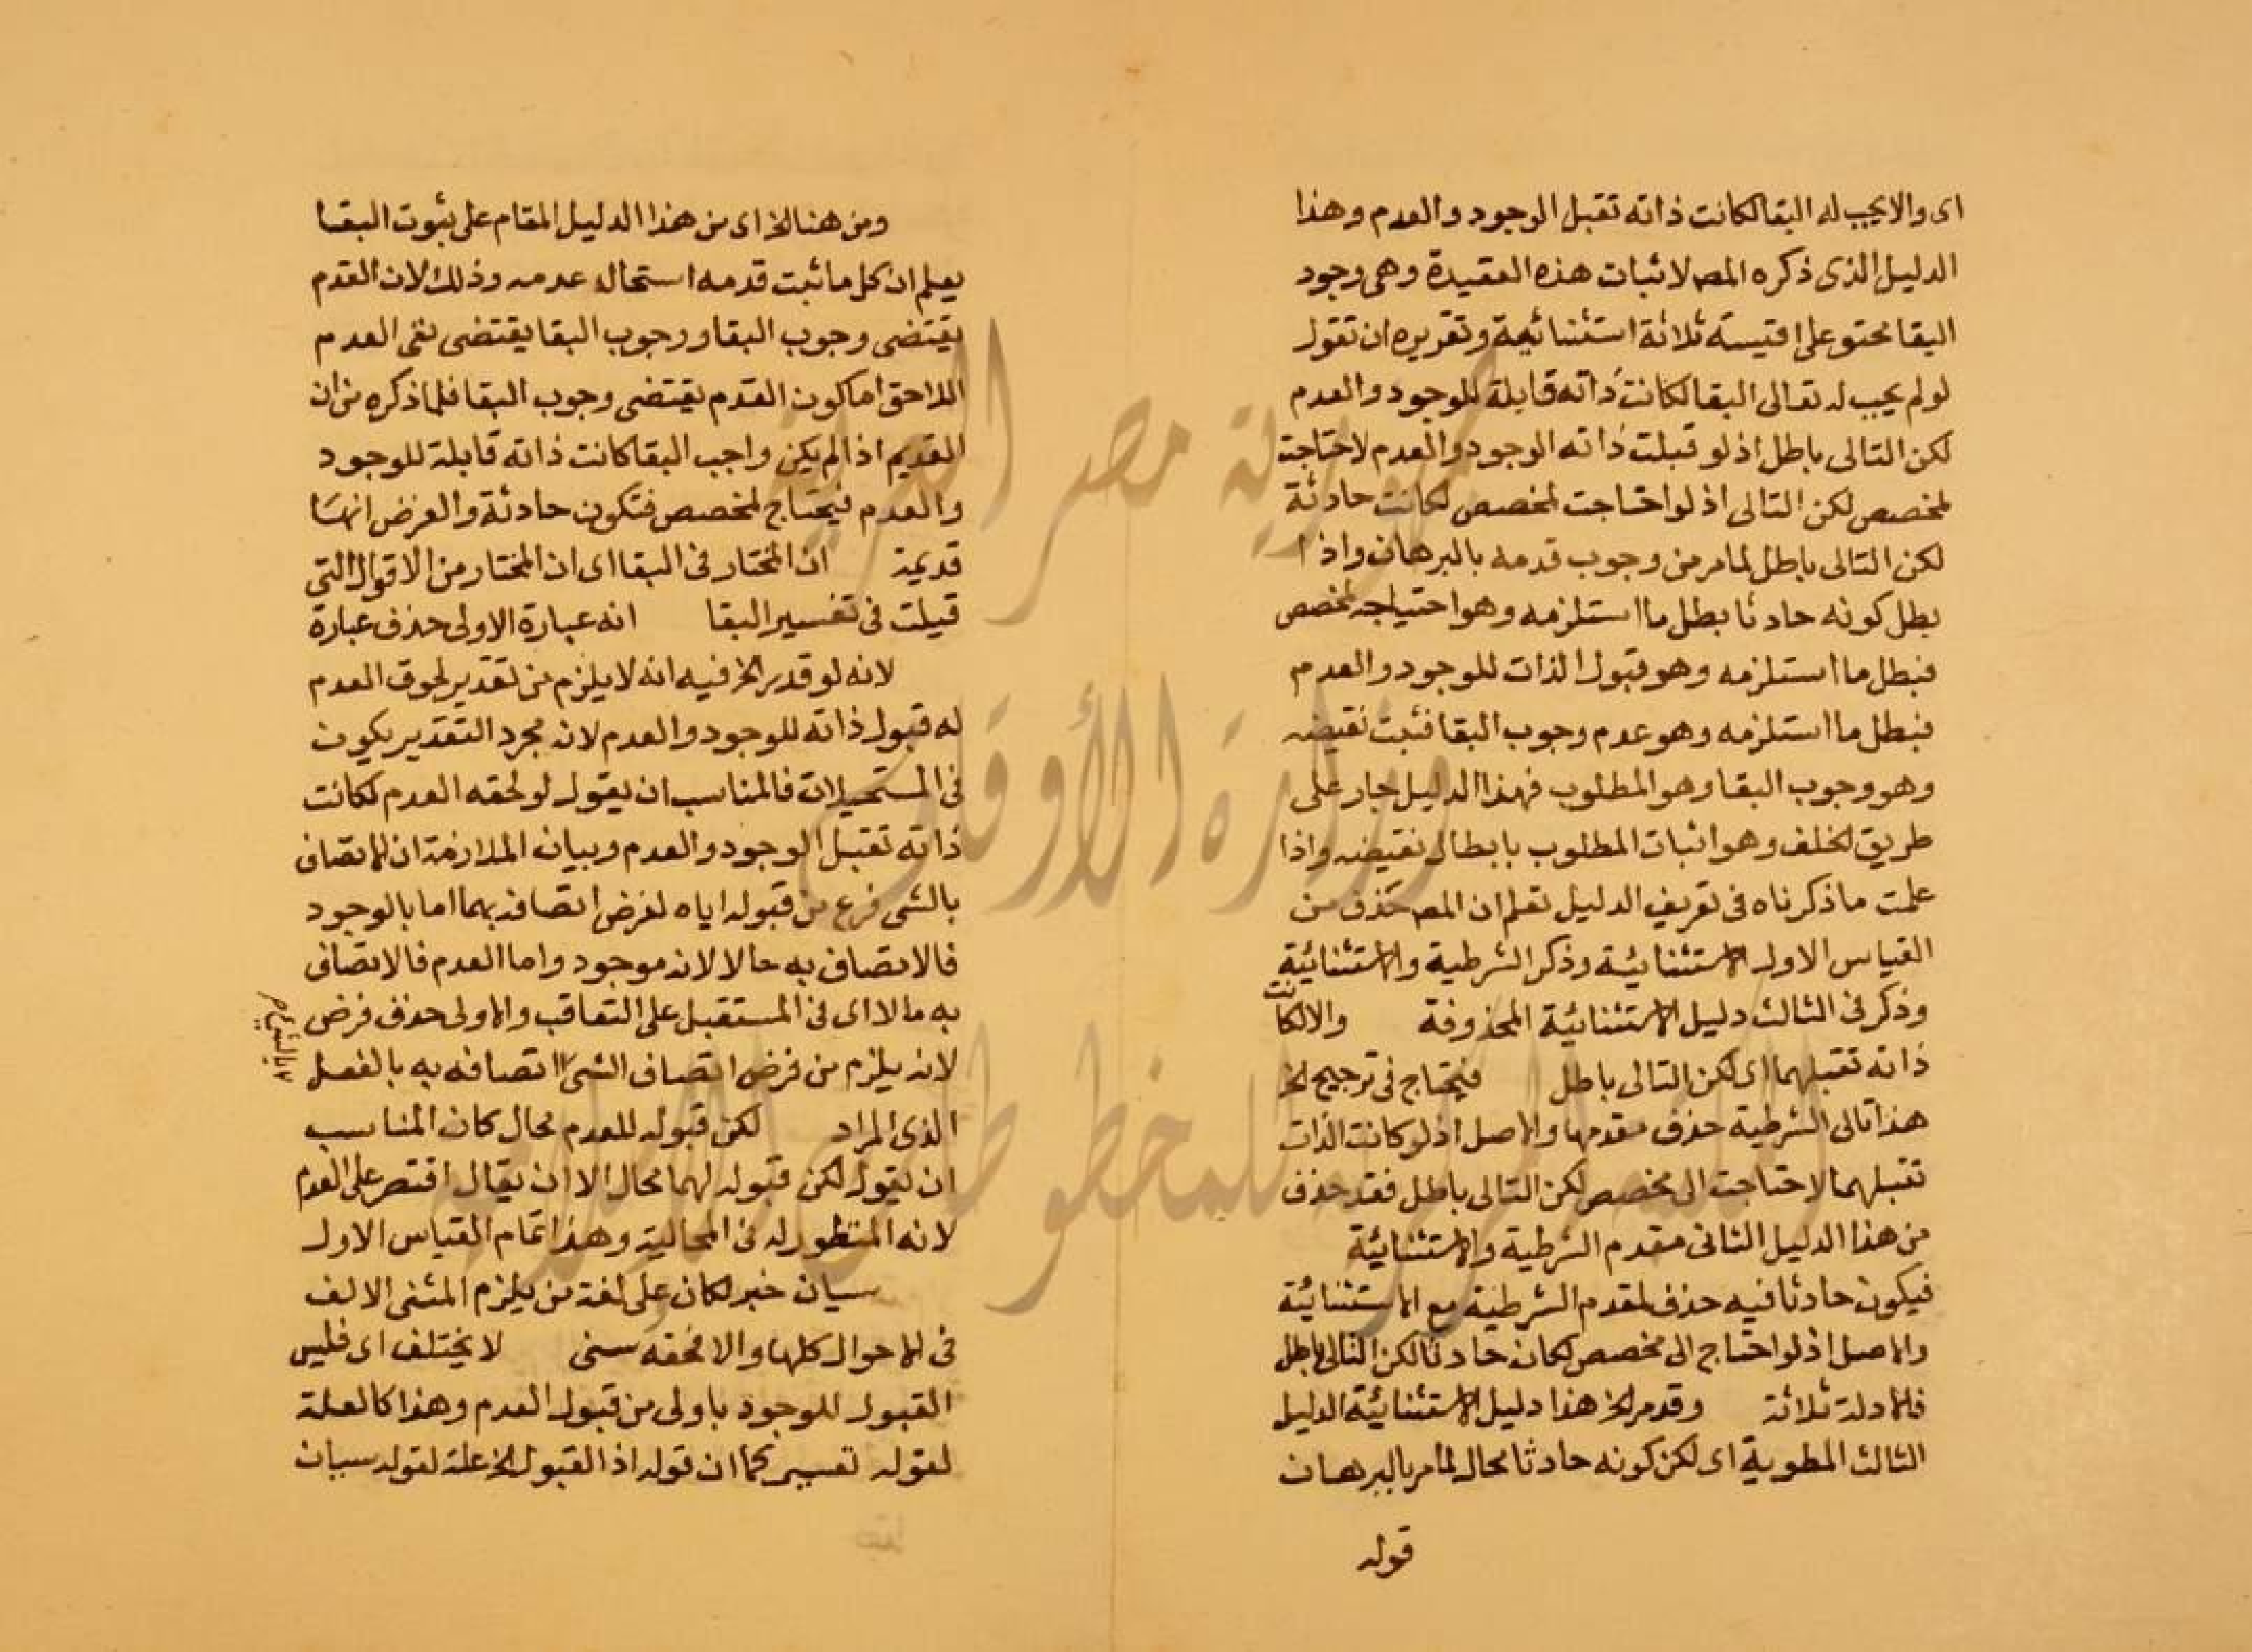 اى والا يجب له البقا لكانت ذاته تقبل الوجود والعدم وهذا
الدليل الذى ذكره المصـ لاثبات هذه العقيدة وهى وجود
البقا محتو على اقيسة ثلاثة استثنائية وتقريره ان تقول
لو لم يجب له تعالى البقا لكانت ذاته قابلة للوجود والعدم
لكن التالى باطل اذ لو قبلت ذاته الوجود والعدم لاحتاجت
لمخصص لكن التالى اذ لو احتاجت لمخصص لكانت حادثة
لكن التالى باطل لما مر من وجوب قدمه بالبرهان واذا
بطل كونه حادثا بطل ما استلزمه وهو احتياجه لمخصص
فبطل ما استلزمه وهو قبول الذات للوجود والعدم
فبطل ما استلزمه وهو عدم وجوب البقا فثبت نقيضه
وهو وجوب البقا وهو المطلوب فهذا الدليل جار على
طريق الخلف وهو اثبات المطلوب بابطال نقيضه واذا
علمت ما ذكرناه فى تعريف الدليل تعلم ان المصـ حذف من
القياس الاول الاستثنائية وذكر الشرطية والاستثنائية
وذكر فى الثالث دليل الاستثنائية المحذوفة والا لكانت
ذاته تقبلهما اى لكن التالى باطل فيحتاج فى ترجيح الخ
هذا تالى الشرطية حذف مقدمها والاصل اذ لو كانت الذات
تقبلهما لاحتاجت الى مخصص لكن التالى باطل فقد حذف
من هذا الدليل الثانى مقدم الشرطية والاستثنائية
فيكون حادثا فيه حذف لمقدم الشرطية مع الاستثنائية
والاصل اذ لو احتاج الى مخصص لكان حادثا لكن التالى باطل
فالادلة ثلاثة وقد مر الخ هذا دليل الاستثنائية الدليل
الثالث المطوية اى لكن كونه حادثا محال لما مر بالبرهان
قوله
ومن هنا الخ اى من هذا الدليل المقام على ثبوت البقا
يعلم ان كل ما ثبت قدمه استحال عدمه وذلك لان القدم
يقتضى وجوب البقا ووجوب البقا يقتضى نفى العدم
اللاحق اما كون القدم يقتضى وجوب البقا فلما ذكره من ان
القديم اذا لم يكن واجب البقا كانت ذاته قابلة للوجود
والعدم فيحتاج لمخصص فتكون حادثة والفرض انها
قديمة ان المختار فى البقا اى ان المختار من الاقوال التى
قيلت فى تفسير البقا انه عبارة الاولى حذف عبارة
لانه لو قدر الخ فيه انه لا يلزم من تقدير لحوق العدم
له قبول ذاته للوجود والعدم لان مجرد التقدير يكون
فى المستحيلات فالمناسب ان يقول لو لحقه العدم لكانت
ذاته تقبل الوجود والعدم وبيان الملازمة ان الاتصاف
بالشى فرع من قبوله اياه لفرض اتصافه بهما اما بالوجود
فالاتصاف به حالا لانه موجود واما العدم فالاتصاف
به مالا اى فى المستقبل على التعاقب والاولى حذف فرض
لانه يلزم من فرض اتصاف الشى اتصافه به بالفعل
الذى المراد لكن قبوله للعدم محال كان المناسب
ان يقول لكن قبوله لهما محال الا ان يقال اقتصر على العدم
لانه المنظور له فى المحالية وهذا تمام القياس الاول
سيان خبر لكان على لغة من يلزم المثنى الالف
فى الاحوال كلها والا فحقه سنى لا يختلف اى فليس
القبول للوجود باولى من قبول العدم وهذا كالعلة
لقوله تفسير كما ان قوله اذ القبول الخ علة لقوله سيان